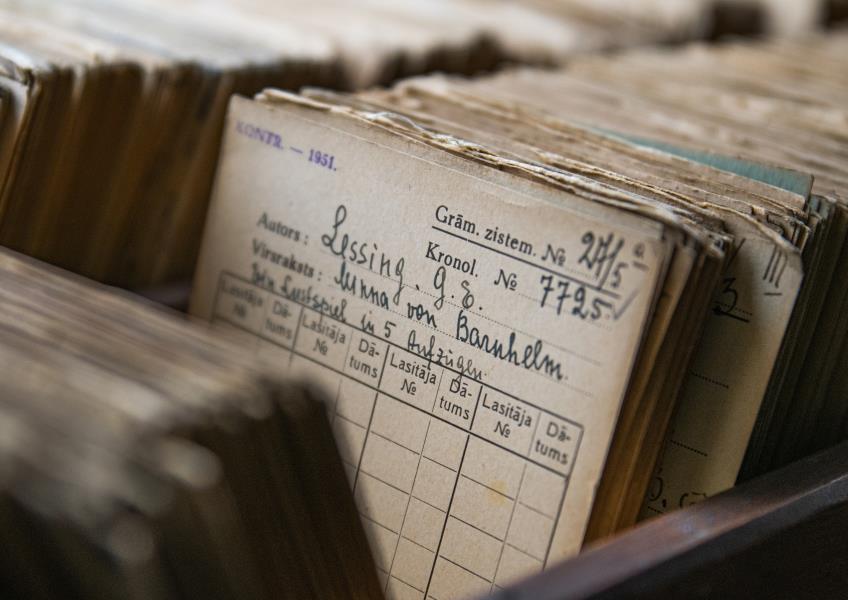 KONTR. — 1951.
Grām. zistem. № 27/5 a
Kronol. № 7725
Autors: Lessing, G. E.
Virsraksts: Minna von Barnhelm.
Ein Lustspiel in 5 Aufzügen.
Lasitāja № Dā- tums Lasitāja № Dā- tums Lasitāja № Dā- tums Lasitāja № Dā- tums
III
3